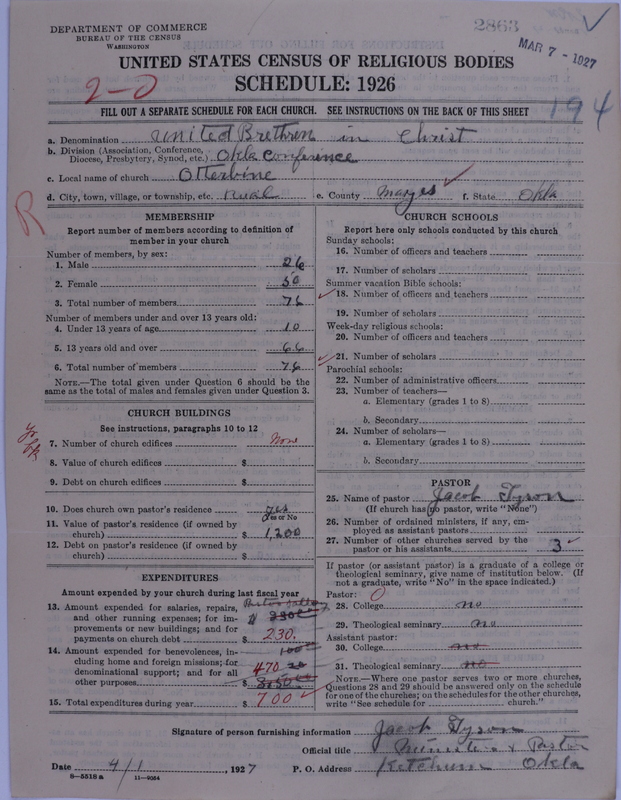 DEPARTMENT OF COMMERCE
BUREAU OF THE CENSUS
WASHINGTON
2863
MAR 7 - 1927
UNITED STATES CENSUS OF RELIGIOUS BODIES
SCHEDULE: 1926
2-0
FILL OUT A SEPARATE SCHEDULE FOR EACH CHURCH. SEE INSTRUCTIONS ON THE BACK OF THIS SHEET
194
a. Denomination United Brethren in Christ
b. Division (Association, Conference, Diocese, Presbytery, Synod, etc.) Okla Conference
c. Local name of church Otterbine
d. City, town, village, or township, etc. Rural e. County Mayes f. State Okla
R
MEMBERSHIP
Report number of members according to definition of
member in your church
Number of members, by sex:
1. Male 26
2. Female 50
3. Total number of members 76
Number of members under and over 13 years old:
4. Under 13 years of age 10
5. 13 years old and over 66
6. Total number of members 76
NOTE.—The total given under Question 6 should be the
same as the total of males and females given under Question 3.
CHURCH BUILDINGS
See instructions, paragraphs 10 to 12
7. Number of church edifices None
8. Value of church edifices $
9. Debt on church edifices $
10. Does church own pastor's residence yes
Yes or No
11. Value of pastor's residence (if owned by
church) $ 1,200
12. Debt on pastor's residence (if owned by
church) $
EXPENDITURES
Amount expended by your church during last fiscal year
13. Amount expended for salaries, repairs,
and other running expenses; for im-
provements or new buildings; and for
payments on church debt $ 230.
14. Amount expended for benevolences, in-
cluding home and foreign missions; for
denominational support; and for all
other purposes $ 470
15. Total expenditures during year $ 700
CHURCH SCHOOLS
Report here only schools conducted by this church
Sunday schools:
16. Number of officers and teachers
17. Number of scholars
Summer vacation Bible schools:
18. Number of officers and teachers
19. Number of scholars
Week-day religious schools:
20. Number of officers and teachers
21. Number of scholars
Parochial schools:
22. Number of administrative officers
23. Number of teachers—
a. Elementary (grades 1 to 8)
b. Secondary
24. Number of scholars—
a. Elementary (grades 1 to 8)
b. Secondary
PASTOR
25. Name of pastor Jacob Tyson
(If church has no pastor, write "None")
26. Number of ordained ministers, if any, em-
ployed as assistant pastors
27. Number of other churches served by the
pastor or his assistants 3
If pastor (or assistant pastor) is a graduate of a college or
theological seminary, give name of institution below. (If
not a graduate, write "No" in the space indicated.)
Pastor: 0
28. College no
29. Theological seminary no
Assistant pastor:
30. College no
31. Theological seminary no
NOTE.—Where one pastor serves two or more churches,
Questions 28 and 29 should be answered only on the schedule
for one of the churches; on the schedules for the other churches,
write "See schedule for church."
Signature of person furnishing information Jacob Tyson
Official title Minister & Pastor
Date 4/1, 1927 P. O. Address Ketchum Okla
8-5518 a 11-9034